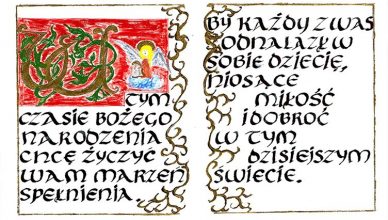 W
TYM
CZASIE BOŻEGO
NARODZENIA
CHCĘ ŻYCZYĆ
WAM MARZEŃ
SPEŁNIENIA.
BY KAŻDY Z WAS
ODNALAZŁ W
SOBIE DZIECIĘ,
NIOSĄCE
MIŁOŚĆ
I DOBROĆ
W TYM
DZISIEJSZYM
ŚWIECIE.